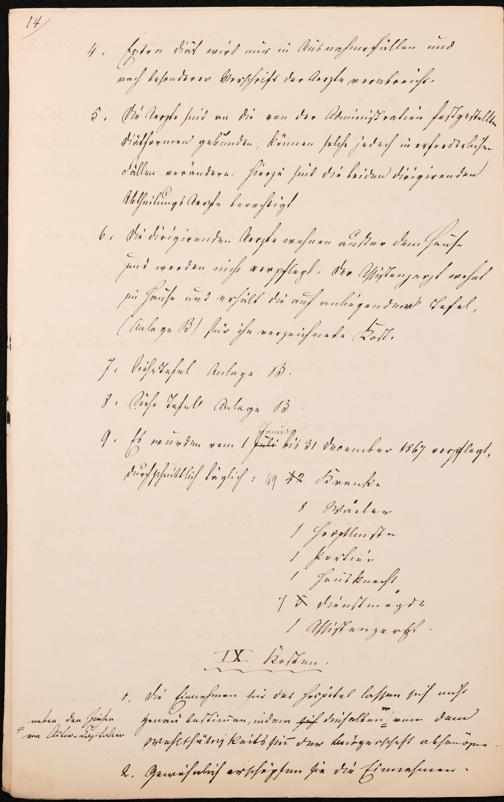 14
4. Extra Diät wird nur in Ausnahmefällen und
nach besonderer Vorschrift der Aerzte verabreicht.
5. Die Aerzte sind an die von der Administration festgestellten
Diätformen gebunden, können solche jedoch in erforderlichen
Fällen verändern. Hierzu sind die beiden dirigirenden
Abtheilungs Aerzte berechtigt
6. Die dirigirenden Aerzte wohnen außer dem Hause
und werden nicht verpflegt. Der Assistenzarzt wohnt
im Hause und erhält die auf anliegender Tafel,
(Anlage B) für ihn verzeichnete Kost.
7. Siehe Tafel Anlage B.
8. Siehe Tafel Anlage B
Januar
9. Es wurden vom 1 Juli bis 31 December 1867 verpflegt,
durchschnittlich täglich: 49 42 Kranke
8 Wärter
1
1 Portier
1 Hausknecht
7 5 Dienstmägde
1 Assistenzarzt.
IX Kosten.
1. Die Einnahmen für das Hospital lassen sich nicht
genau bestimmen, indem sich dieselben von dem
neben den Zinsen
von Activ-Capitalien
Wohlthätigkeitssinn der Bürgerschaft abhängen.
2. Gewöhnlich erschöpfen sie die Einnahmen.